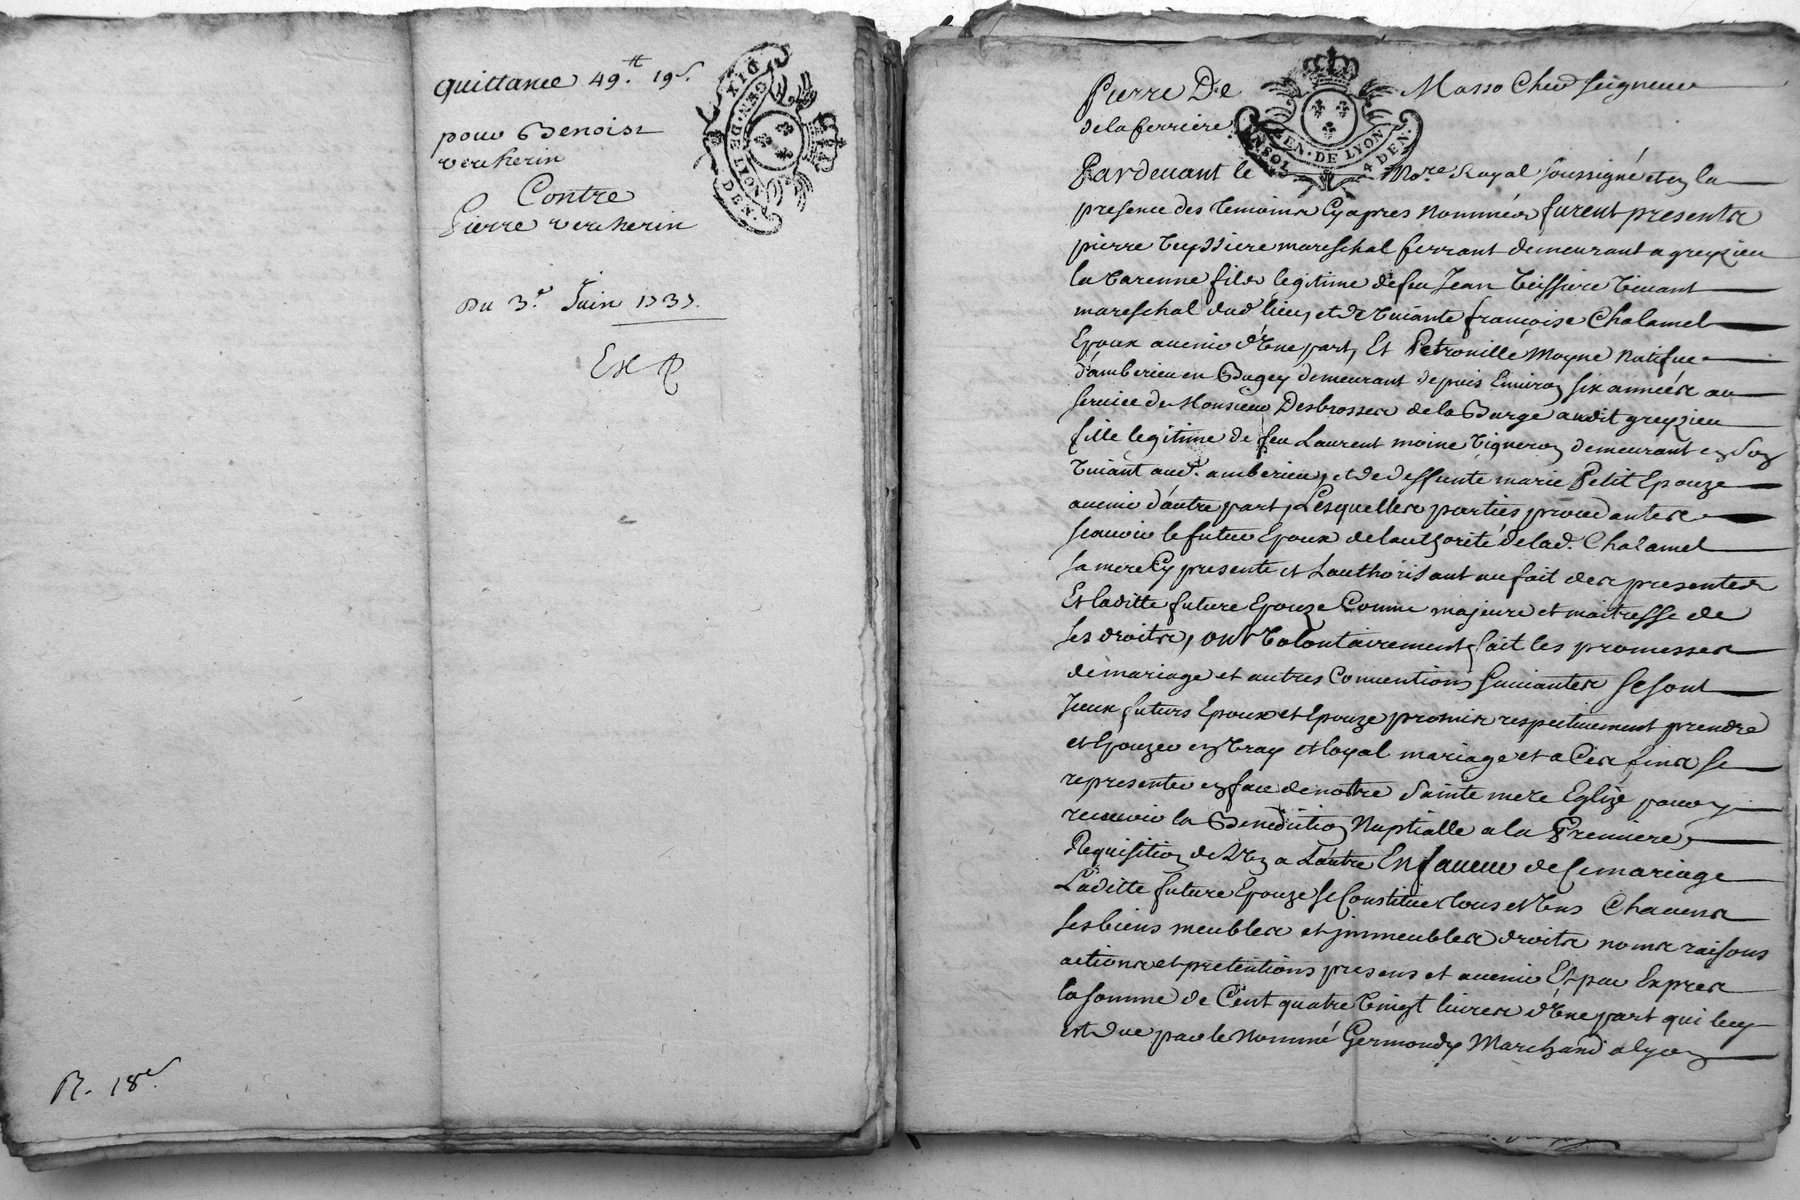 quittance 49.tt 19s.
pour Benoist
vercherin
Contre
Pierre vercherin
Du 3e. Juin 1737.
Ex
R. 18s.
DIX
GEN. DE LYON
DEN.
Pierre De Masso Cher Seigneur
de la ferriere
GEN. DE LYON
UN SOL 4 DEN.
Pardevant le Nore Royal soussigné et en la
presence des temoins Cy apres nommés furent presents
pierre teyssiere mareschal ferrant demeurant a greyzieu
la varenne fils legitime de feu Jean teissiere vivant
mareschal dud lieu, et de vivante françoise Chalamel
Epoux avenir d'vne part, Et Petronille Moyne natifue
d'amberieu en Bugey demeurant depuis Environ six années au
service de Monsieur Desbrosses de la Barge audit greyzieu
fille legitime de feu Laurent moine vigneron demeurant en son
vivant aud. amberieu, et de deffunte marie Petit Epouze
avenir d'autre part, Lesquelles parties procedantes
scavoir le futur Epoux de l'authorité de lad. Chalamel
sa mere Cy presente et L'authorisant au fait des presentes
Et laditte future Epouze Comme majeure et maitresse de
ses droits, ont volontairement fait les promesses
de mariage et autres Conventions suivantes se sont
Iceux futurs Epoux et Epouze promis respectivement prendre
et Epouzer en vray et loyal mariage et a Ces fins se
representer en face de nottre Sainte mere Eglize pour y
recevoir la Benediction Nuptialle a la Premiere
Requisition de L'vn a L'autre En faveur de Ce mariage
Laditte future Epouze se Constitue tous et vns Chacuns
ses biens meubles et jmmeubles droits noms raisons
actions et pretentions presens et avenir Et par Expres
la somme de Cent quatre vingt livres d'vne part qui luy
est due par le nommé Germondy Marchand a lyon